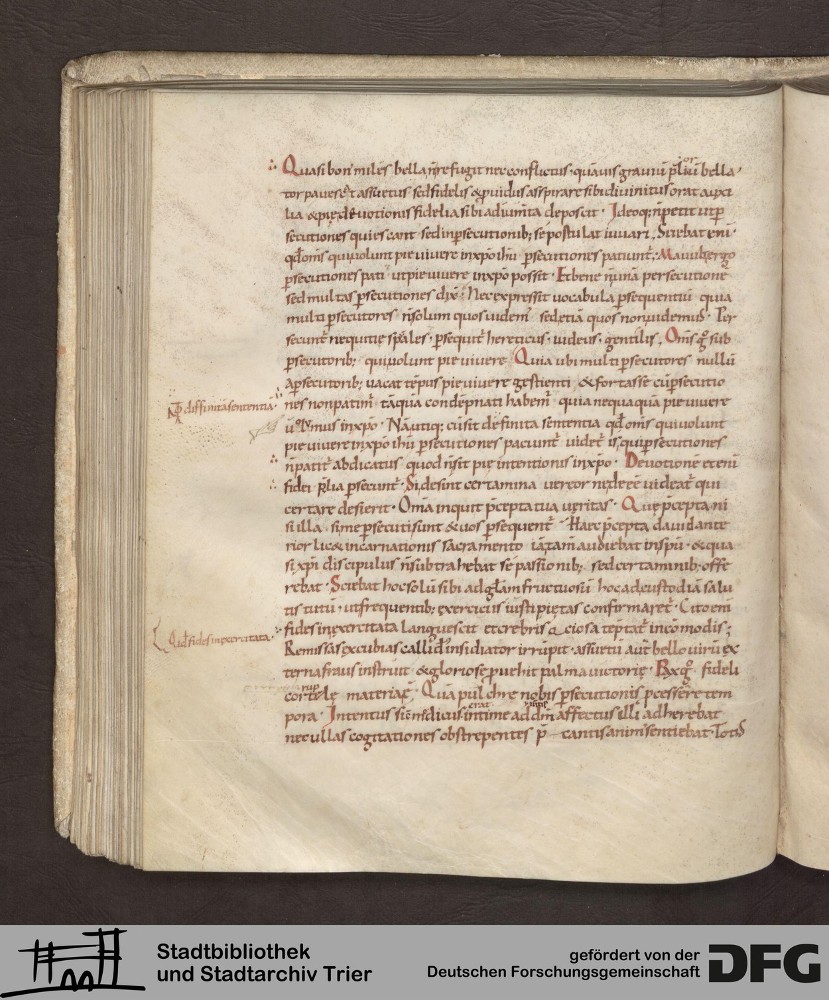 Quasi bon' miles bella n̄ refugit nec conflictus · quāuis grauiū p̄liorū bella
tor pauescat assuetus sed fidelis & prouidus aspirare sibi diuinitus orat auxi
lia & piæ deuotionis fidelia sibi adiumta deposcit · Ideoq; n̄ petit ut p̄
secutiones quiescant sed in p̄secutionib; se postulat iuuari. Sciebat enī ·
qđ om̄s qui uolunt pie uiuere in xp̄o ihū p̄secutiones patiunt̄
p̄secutiones pati ut pie uiuere in xp̄o possit · Et bene n̄ unā persecutionē
sed multas p̄secutiones dix̄ · Nec expressit uocabula p̄sequentiū quia
multi p̄secutores n̄ solum quos uidem' sed etiā quos non uidemus · Per
secunt̄ nequitię sp̄ales · p̄sequit̄ hereticus · iudeus · gentilis · Om̄s g° sub
p̄secutorib; qui uolunt pie uiuere Quia ubi multi p̄secutores nullū
a p̄secutorib; uacat tēpus pie uiuere gestienti & fortasse cū p̄secutio
nes non patim' tāquā condēpnati habem' quia nequaquā pie uiuere
diffinitā sententiā
uolumus in xp̄o · Nā utiq; cū sit definita sententia qđ om̄s qui uolunt
pie uiuere in xp̄o ihū p̄secutiones paciunt̄ uidet̄ is qui p̄secutiones
n̄ patit̄ abdicatus quod n̄ sit pię intentionis in xp̄o · Deuotionē etenī
fidei p̄lia p̄secunt̄ · Si desint certamina uereor ne deeē uideat̄ qui
certare desierit · Om̄ia inquit p̄cepta tua ueritas · Que p̄cepta ni
si illa si me p̄secuti sunt & uos p̄sequent̄ · Haec p̄cepta dauid ante
rior lic& incarnationis sacramento iā tam̄ audiebat in sp̄u · & qua
si xp̄i discipulus n̄ subtrahebat se passionib; sed certaminib; offe
rebat · Sciebat hoc solū sibi ad gl̄am fructuosū hoc ad custodiā salu
tis tutū · ut frequentib; exercicus iusti pietas confirmaret̄ · Cito enī
fides inexercitata languescit et crebris ociosa tēptat̄ incōmodis ;
Qđ fides inexercitata ·
Remissas excubias callid' insidiator irrupit · assuetū aut̄ bello uirū ex
terna fraus instruit & gloriosę puehit palma uictorię · Pax g° fideli
corruptelę materia ē · Quā pulchre nobis p̄secutionis p̄cessere tem
pora · Intentus
nec ullas cogitationes obstrepentes p̄cantis anim' sentiebat · Totus
Stadtbibliothek
und Stadtarchiv Trier
gefördert von der
Deutschen Forschungsgemeinschaft
DFG